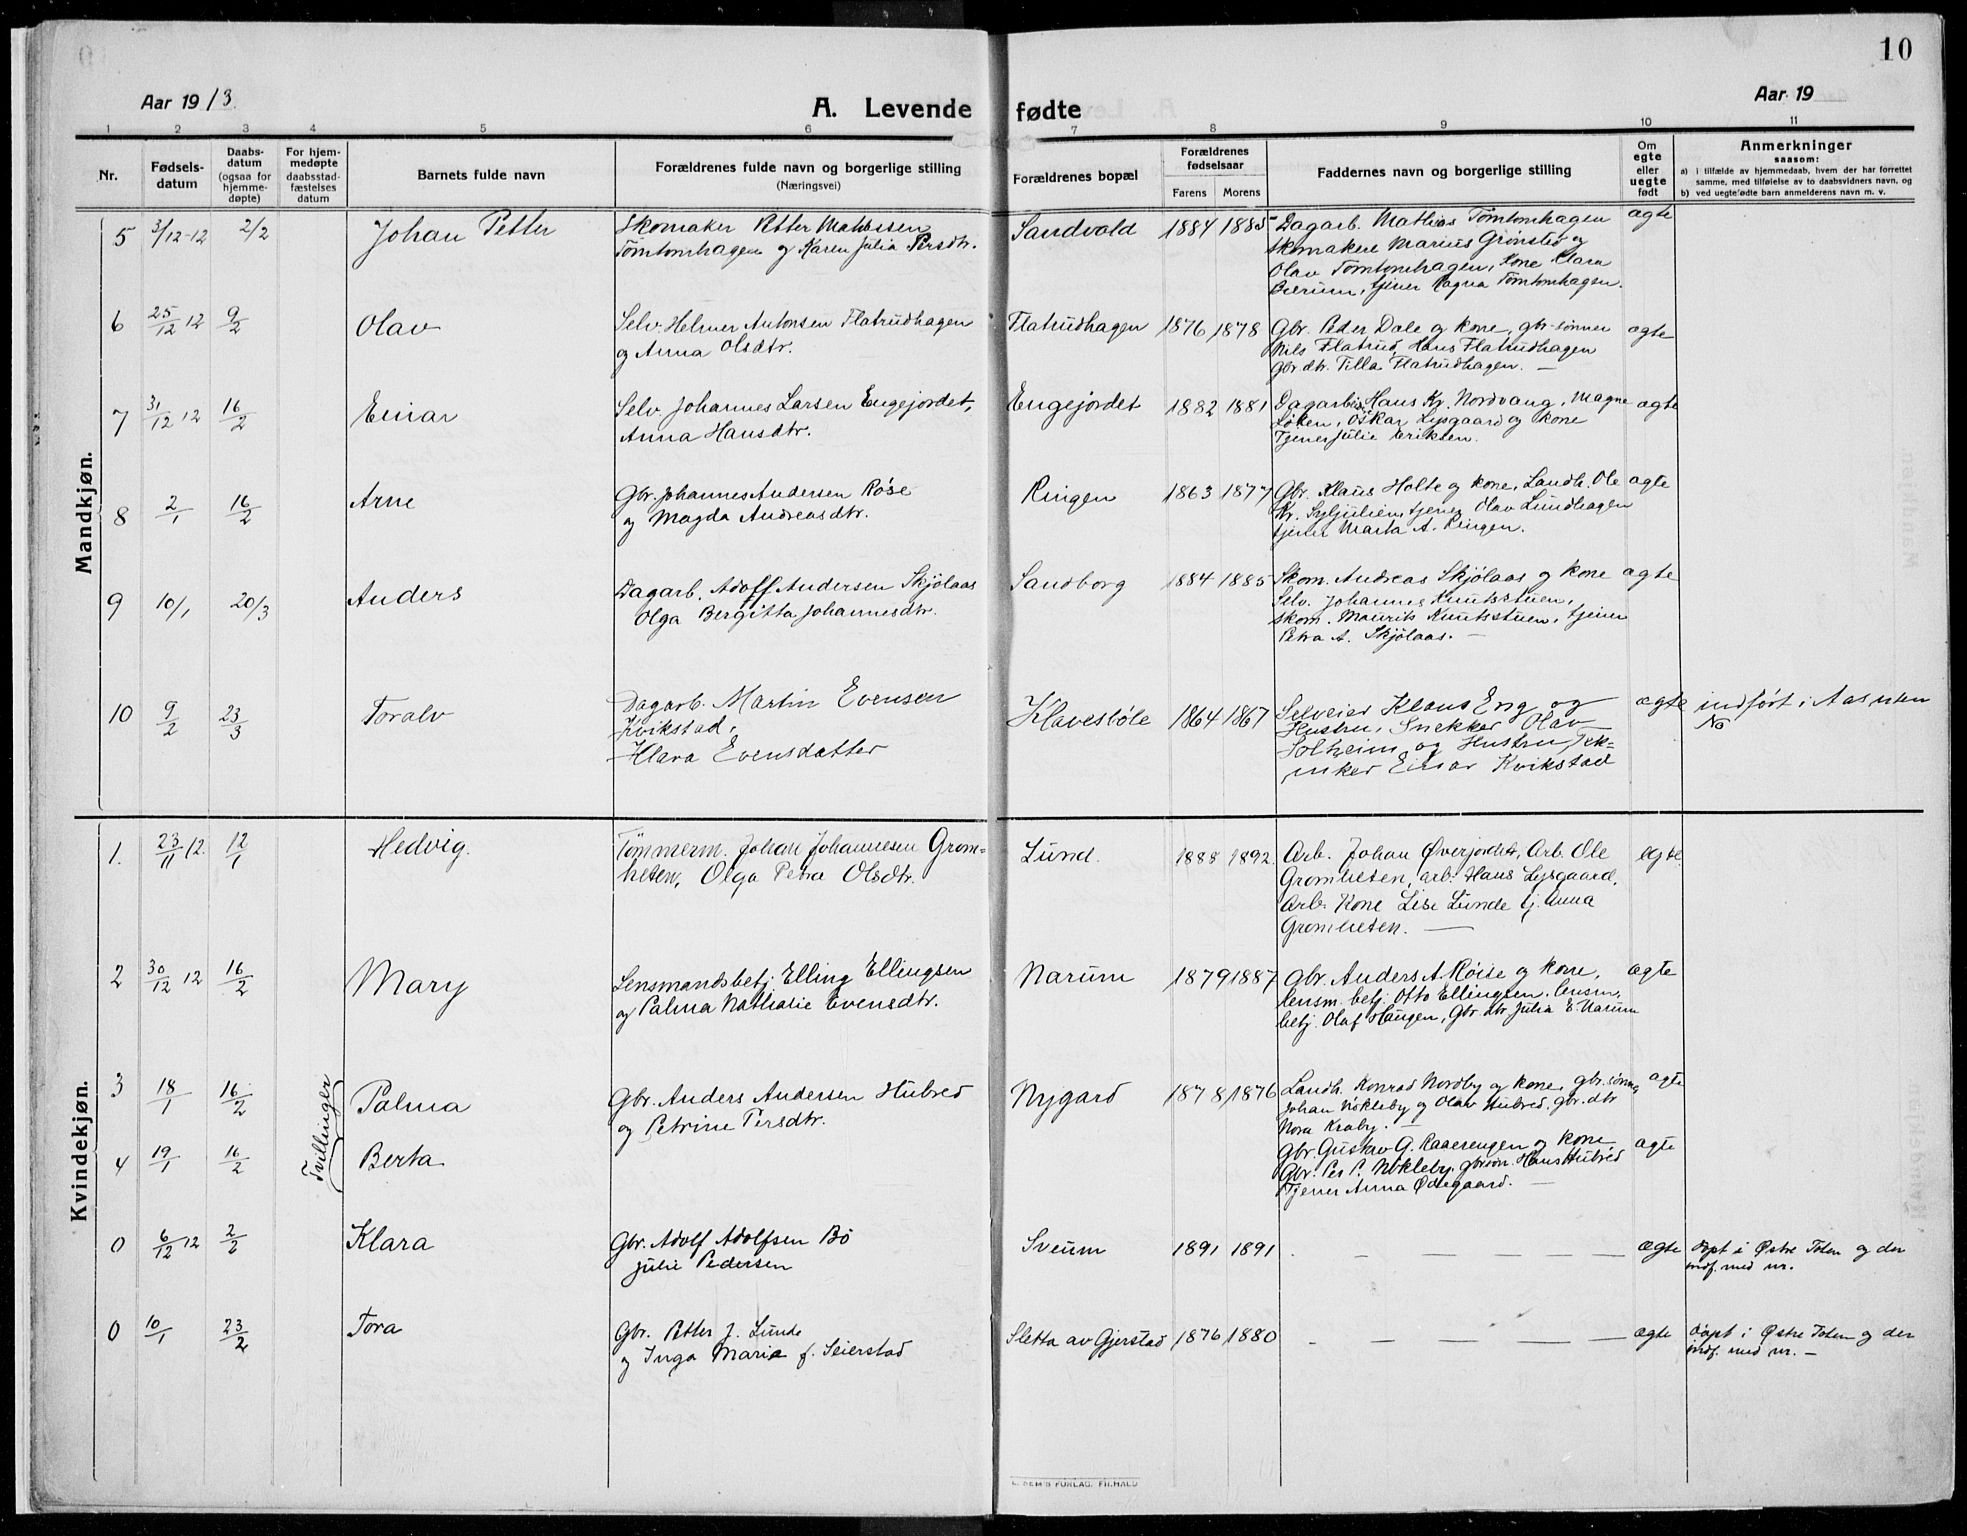 10
Aar 1913
A. Levende fødte
Aar 19
1 2 3 4 5 6 7 8 9 10 11
Nr.
Fødsels-
datum
Daabs-
datum
(ogsaa for
hjemme-
døpte)
For hjem-
medøpte
daabsstad-
fæstelses
datum
Barnets fulde navn
Forældrenes fulde navn og borgerlige stilling
(Næringsvei)
Forældrenes bopæl
Forældrenes
fødselsaar
Farens Morens
Faddernes navn og borgerlige stilling
Om
egte
eller
uegte
født
Anmerkninger
saasom:
a) i tilfælde av hjemmedaab, hvem der har forrettet
samme, med tilføielse av to daabsvidners navn, og
b) ved uegte fødte barn anmelderens navn m. v.
Mandkjøn.
5 3/12-12 2/2 Johan Petter
Skomaker Petter Mathissen
Tømtomhagen og Karen Julia Persdtr.
Sandvold 1884 1885
Dagarb. Mathias Tømtomhagen
skomakere Marius Grønsted og
Olav Tømtomhagen, Kone Klara
Bærum, tjener Ragna Tomtomhagen.
ægte
6 25/12 12 9/2 Olav
Selv. Helmer Antonsen Flatrudhagen
og Anna Olsdtr.
Flatrudhagen 1876 1878
Gbr. Peder Dale og kone, gbr-sønner
Nils Flatrud, Hans Flatrudhagen
Gbr dtr. Tilla Flatrudhagen. —
ægte
7 31/12 12 16/2 Einar
Selv. Johannes Larsen Engejordet,
Anna Hansdtr.
Engejordet 1882 1881
Dagarbid. Hans Kr. Nordvang, Magne
Løken, Oskar Lysgaard og kone
Tjener Julie Eriksen.
ægte
8 2/1 16/2 Arne
Gbr. Johannes Andersen Røse
og Magda Andreasdtr.
Ringen 1863 1877
Gbr. Klaus Holte og kone, Landh. Ole
Kr. Syljulien, tjener Olav Lundhagen
tjener Marta A. Ringen.
ægte
9 10/1 20/3 Anders
Dagarb. Adolf Andersen Skjølaas
Olga Bergitta Johannesdtr.
Sandborg 1884 1885
Skom. Andreas Skjølaas og kone
Selv. Johannes Knutsstuen,
skom. Maurits Knutsstuen, tjener
Petra A. Skjølaas. —
ægte
10 9/2 23/3 Toralv
Dagarb. Martin Evensen
Kvikstad,
Klara Evensdatter
Klavesbøle 1864 1867
Selveier Klaus Eng og
Hustru, Snekker Olav
Solheim og Hustru, Tek-
niker Einar Kvikstad
ægte
indført i Aas uten
No
Kvindekjøn.
1. 23/11 12. 12/1 Hedvig.
Tømmerm. Johan Johannesen Grøm-
heten, Olga Petra Olsdtr.
Lund. 1888 1892.
Arb. Johan Øverjordet, Arb. Ole
Grømheten, arb. Hans Lysgaard,
Arb. Kone Lise Lunde tj. Anna
Grømheten. —
ægte.
2 30/12 12 16/2 Mary
Lensmandsbetj. Elling Ellingsen
og Palma Nathalie Evensdtr.
Narum 1879 1887
Gbr. Anders A. Røise og kone,
lensm. betj. Otto Ellingsen. lensm.
betj. Olaf Haugen, Gbr dtr Julia E. Narum
ægte
Tvillinger
3 18/1 16/2 Palma
Gbr. Anders Andersen Hubred
og Petrine Persdtr.
Nygard 1878 1876
Landh. Konrad Nordby og kone, gbr. sønner
Johan Nøkleby og Olav Hubred, gbr. dtr
Nora Kraby. —
ægte
4 19/1 16/2 Berta
Gbr. Gustav G. Raaerengen og kone
Gbr. Per P. Nøkleby, gbrsøn. Hans Hubred
Tjener Anna Ødegaard. —
ægte
0 6/12 12 2/2 Klara
Gbr. Adolf Adolfsen Bø
Julie Pedersen
Sveum 1891 1891
ægte
døpt i Østre Toten og der
indf. med nr.
0 10/1 23/2 Tora
Gbr. Petter J. Lunde
og Inga Marie f. Seierstad
Sletta av Gjerstad 1876 1880
ægte
døpt i Østre Toten og der
indf. med nr. —
E. SEM'S FORLAG, FR.HALD